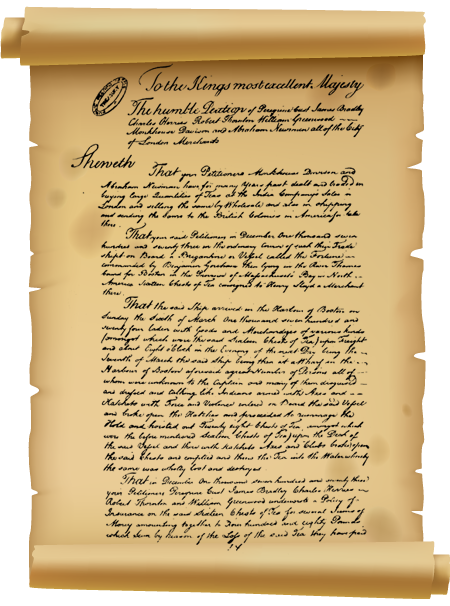 To the Kings most excellent Majesty
The humble Petition of Peregrine Cust James Bradley
Charles Herries Robert Thornton William Greenwood
Monkhouse Davison and Abraham Newman all of the City
of London Merchants
Sheweth
That your Petitioners Monkhouse Davison and
Abraham Newman have for many years past dealt and traded in
buying large Quantities of Teas at the India Companys Sales in
London and selling the same by Wholesale and also in shipping
and sending the same to the British Colonies in America for sale
there.
That your said Petitioners in December One thousand seven
hundred and seventy three in the ordinary course of such their Trade
shipt on Board a Brigantine or Vessel called the Fortune
commanded by Benjamin Gorham then lying in the River Thames
bound for Boston in the Province of Massachusets Bay in North
America Sixteen Chests of Tea consigned to Henry Lloyd a Merchant
there
That the said Ship arrived in the Harbour of Boston on
Sunday the Sixth of March One thousand seven hundred and
seventy four laden with Goods and Merchandizes of various kinds
(amongst which were the said Sixteen Chests of Tea) upon Freight
and about Eight oClock in the Evening of the next Day being the
Seventh of March the said Ship being then at a Wharf in the
Harbour of Boston aforesaid a great Number of Persons all of
whom were unknown to the Captain and many of them disguised
and dressed and talking like Indians armed with Axes and
Hatchets with Force and Violence entered on Board the said Vessel
and broke open the Hatches and proceeded to rummage the
Hold and hoisted out Twenty eight Chests of Tea, amongst which
were the before mentioned Sixteen Chests of Tea, upon the Deck of
the said Vessel and there with Hatchets Axes and Clubs broke open
the said Chests and emptied and threw the Tea into the Water whereby
the same was wholly lost and destroyed
That in December One thousand seven hundred and seventy three
your Petitioners Peregrine Cust James Bradley Charles Herries
Robert Thornton and William Greenwood underwrote a Policy of
Insurance on the said Sixteen Chests of Tea for several Sums of
Money amounting together to Four hundred and eighty Pounds
which Sum by reason of the Loss of the said Tea they have paid